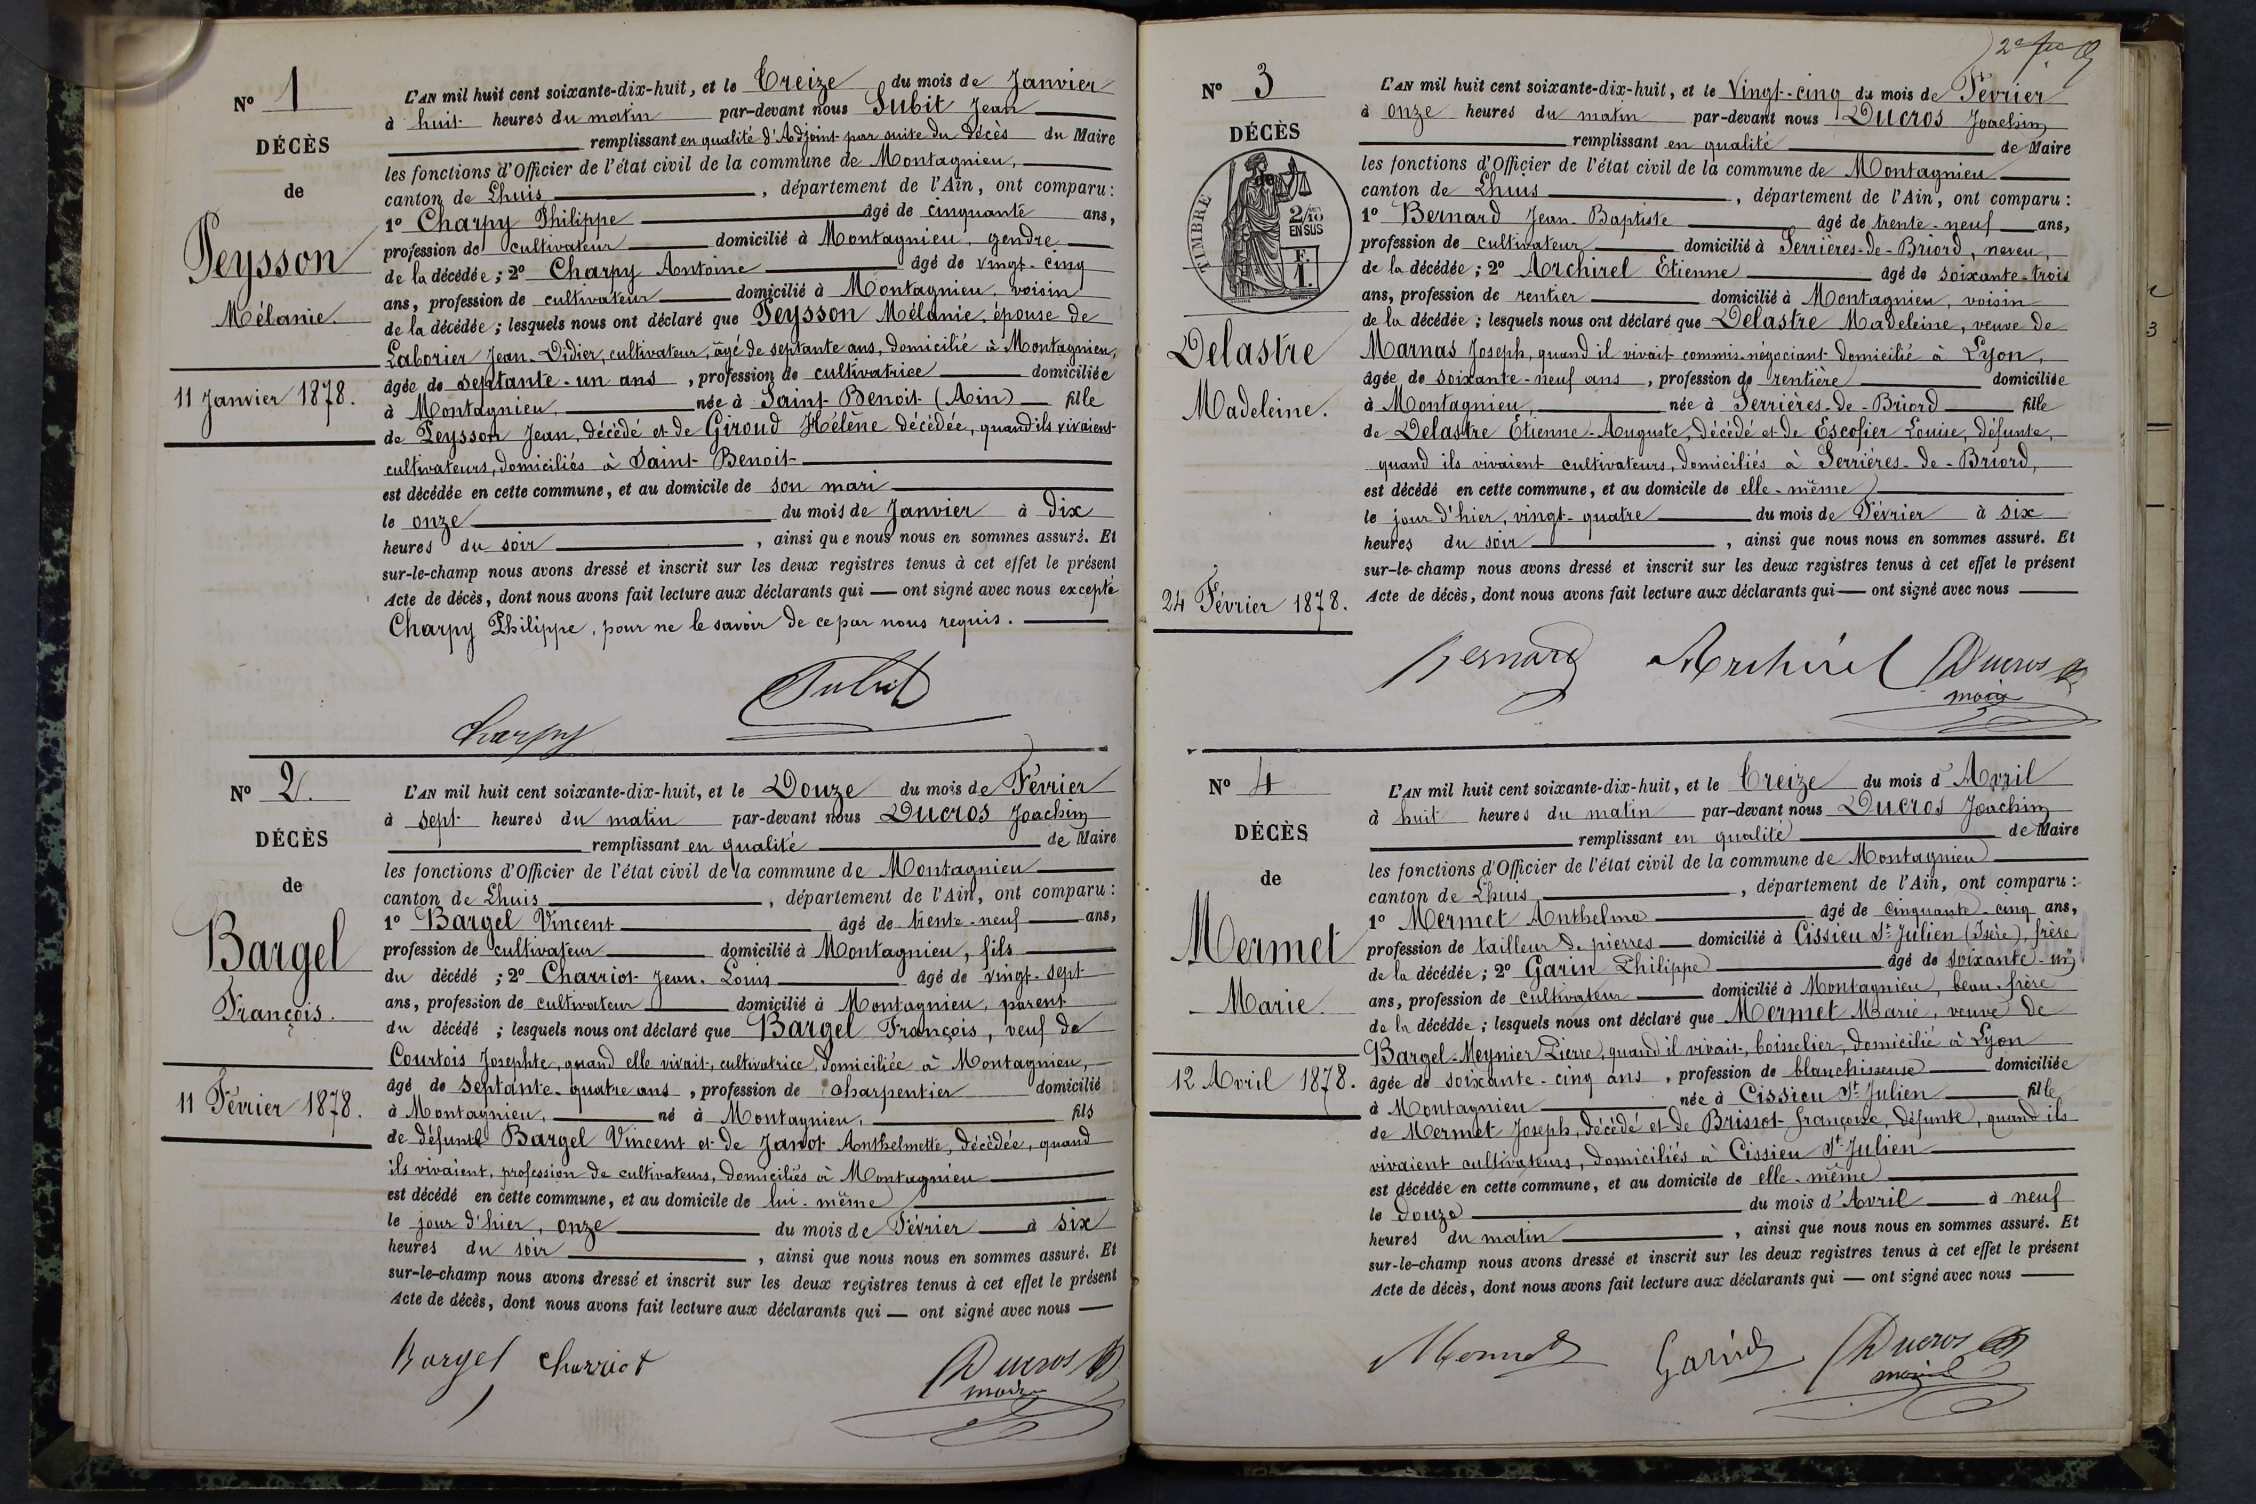 Nº 1
DÉCÈS
de
Peysson
Mélanie.
11 Janvier 1878.
L'AN mil huit cent soixante-dix-huit, et le Treize du mois de Janvier
à huit heures du matin par-devant nous Subit Jean
remplissant en qualité d'Adjoint par suite du décès du Maire
les fonctions d'Officier de l'état civil de la commune de Montagnieu,
canton de Lhuis, département de l'Ain, ont comparu :
1º Charpy Philippe âgé de cinquante ans,
profession de cultivateur domicilié à Montagnieu, gendre
de la décédée ; 2º Charpy Antoine âgé de vingt-cinq
ans, profession de cultivateur domicilié à Montagnieu, voisin
de la décédée ; lesquels nous ont déclaré que Peysson Mélanie, épouse de
Laborier Jean-Didier, cultivateur, âgé de septante ans, domicilié à Montagnieu,
âgée de septante-un ans, profession de cultivatrice domiciliée
à Montagnieu, née à Saint-Benoit (Ain) fille
de Peysson Jean, décédé et de Giroud Hélène décédée, quand ils vivaient
cultivateurs, domiciliés à Saint-Benoit
est décédée en cette commune, et au domicile de son mari
le onze du mois de Janvier à dix
heures du soir, ainsi que nous nous en sommes assuré. Et
sur-le-champ nous avons dressé et inscrit sur les deux registres tenus à cet effet le présent
Acte de décès, dont nous avons fait lecture aux déclarants qui — ont signé avec nous excepté
Charpy Philippe, pour ne le savoir de ce par nous requis.
Subit
Charpy
Nº 2.
DÉCÈS
de
Bargel
François.
11 Février 1878.
L'AN mil huit cent soixante-dix-huit, et le Douze du mois de Février
à sept heures du matin par-devant nous Ducros Joachim
remplissant en qualité de Maire
les fonctions d'Officier de l'état civil de la commune de Montagnieu
canton de Lhuis, département de l'Ain, ont comparu :
1º Bargel Vincent âgé de trente-neuf ans,
profession de cultivateur domicilié à Montagnieu, fils
du décédé ; 2º Charriot Jean-Louis âgé de vingt-sept
ans, profession de cultivateur domicilié à Montagnieu, parent
du décédé ; lesquels nous ont déclaré que Bargel François, veuf de
Courtois Josephte, quand elle vivait, cultivatrice, domiciliée à Montagnieu,
âgé de septante-quatre ans, profession de charpentier domicilié
à Montagnieu, né à Montagnieu, fils
de défunt Bargel Vincent et de Janot Anthelmette, décédée, quand
ils vivaient, profession de cultivateurs, domiciliés à Montagnieu
est décédé en cette commune, et au domicile de lui-même
le jour d'hier, onze du mois de Février à six
heures du soir, ainsi que nous nous en sommes assuré. Et
sur-le-champ nous avons dressé et inscrit sur les deux registres tenus à cet effet le présent
Acte de décès, dont nous avons fait lecture aux déclarants qui — ont signé avec nous
Bargel Charriot Ducros
maire
Nº 3
DÉCÈS
de
TIMBRE
2/10
EN SUS
F.
1.
Delastre
Madeleine.
24 Février 1878.
L'AN mil huit cent soixante-dix-huit, et le Vingt-cinq du mois de Février
à onze heures du matin par-devant nous Ducros Joachim
remplissant en qualité de Maire
les fonctions d'Officier de l'état civil de la commune de Montagnieu
canton de Lhuis, département de l'Ain, ont comparu :
1º Bernard Jean-Baptiste âgé de trente-neuf ans,
profession de cultivateur domicilié à Serrières-de-Briord, neveu,
de la décédée ; 2º Archirel Etienne âgé de soixante-trois
ans, profession de rentier domicilié à Montagnieu, voisin
de la décédée ; lesquels nous ont déclaré que Delastre Madeleine, veuve de
Marnas Joseph, quand il vivait commis-négociant domicilié à Lyon,
âgée de soixante-neuf ans, profession de rentière domiciliée
à Montagnieu, née à Serrières-de-Briord fille
de Delastre Etienne-Auguste, décédé et de Escofier Louise, défunte,
quand ils vivaient cultivateurs, domiciliés à Serrières-de-Briord,
est décédé en cette commune, et au domicile de elle-même
le jour d'hier, vingt-quatre du mois de Février à six
heures du soir, ainsi que nous nous en sommes assuré. Et
sur-le-champ nous avons dressé et inscrit sur les deux registres tenus à cet effet le présent
Acte de décès, dont nous avons fait lecture aux déclarants qui — ont signé avec nous
Bernard Archirel Ducros
maire
Nº 4
DÉCÈS
de
Mermet
Marie.
12 Avril 1878.
L'AN mil huit cent soixante-dix-huit, et le Treize du mois d'Avril
à huit heures du matin par-devant nous Ducros Joachim
remplissant en qualité de Maire
les fonctions d'Officier de l'état civil de la commune de Montagnieu
canton de Lhuis, département de l'Ain, ont comparu :
1º Mermet Anthelme âgé de cinquante-cinq ans,
profession de tailleur de pierres domicilié à Cissieu St Julien (Isère), frère
de la décédée ; 2º Garin Philippe âgé de soixante-un
ans, profession de cultivateur domicilié à Montagnieu, beau-frère
de la décédée ; lesquels nous ont déclaré que Mermet Marie, veuve de
Bargel-Meynier Pierre, quand il vivait, boisselier, domicilié à Lyon
âgée de soixante-cinq ans, profession de blanchisseuse domiciliée
à Montagnieu née à Cissieu St Julien fille
de Mermet Joseph, décédé et de Brissot françoise, défunte, quand ils
vivaient cultivateurs, domiciliés à Cissieu St Julien
est décédée en cette commune, et au domicile de elle-même
le douze du mois d'Avril à neuf
heures du matin, ainsi que nous nous en sommes assuré. Et
sur-le-champ nous avons dressé et inscrit sur les deux registres tenus à cet effet le présent
Acte de décès, dont nous avons fait lecture aux déclarants qui — ont signé avec nous
Mermet Garin Ducros
maire